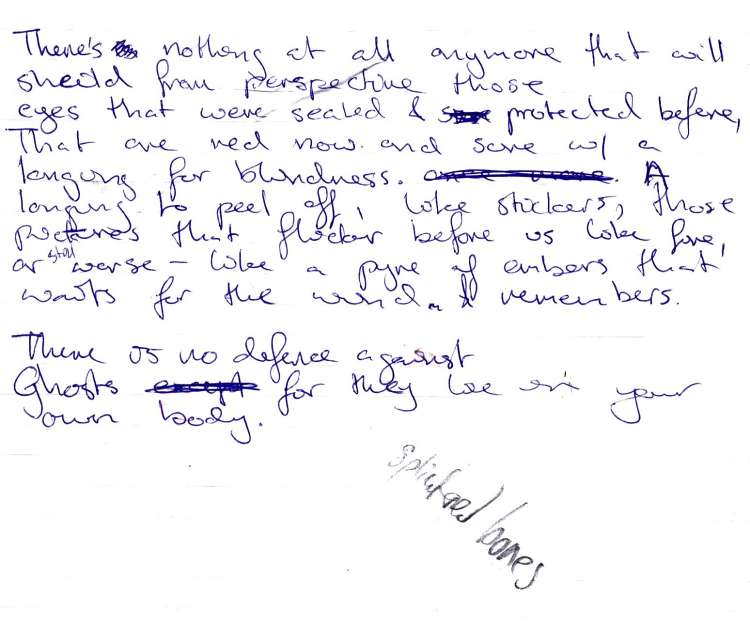 There's nothing at all anymore that will
sheild from perspective those
eyes that were sealed & protected before,
That are red now and sore w/ a
longing for blindness. once more. A
longing to peel off, like stickers, those
pictures that flicker before us like fire,
or still worse – like a pyre of embers that
waits for the wind. & remembers.
There is no defence against
Ghosts except for they lie in your
own body.
splintered bones